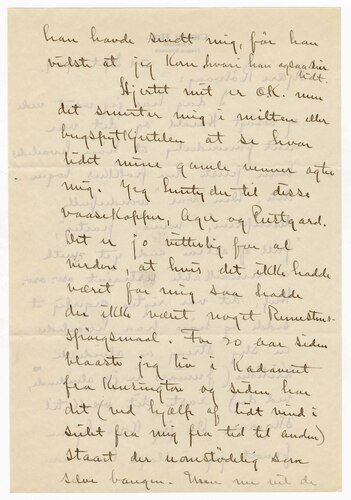 han havde sendt mig, før han
vidste at jeg kom, hvori han ogsaa
lidt.
Hjertet mit er O.K. men
det smerter mig i mitten eller
bugspytkjertelen at se hvor
lidet mine gamle venner agter
mig. Jeg hentyder til disse
Ager og
Det er jo vitterlig for al
Verden at hvis det ikke hadde
været for mig saa hadde
der ikke været noget Runestens-
spørgsmaal. For 30 aar siden
blæste jeg liv i Kadavret
fra Kensington og siden har
det (ved hjælp af lidt vind i
seilet fra mig fra tid til anden)
staaet der uomstødelig som
selve Men nu vil de